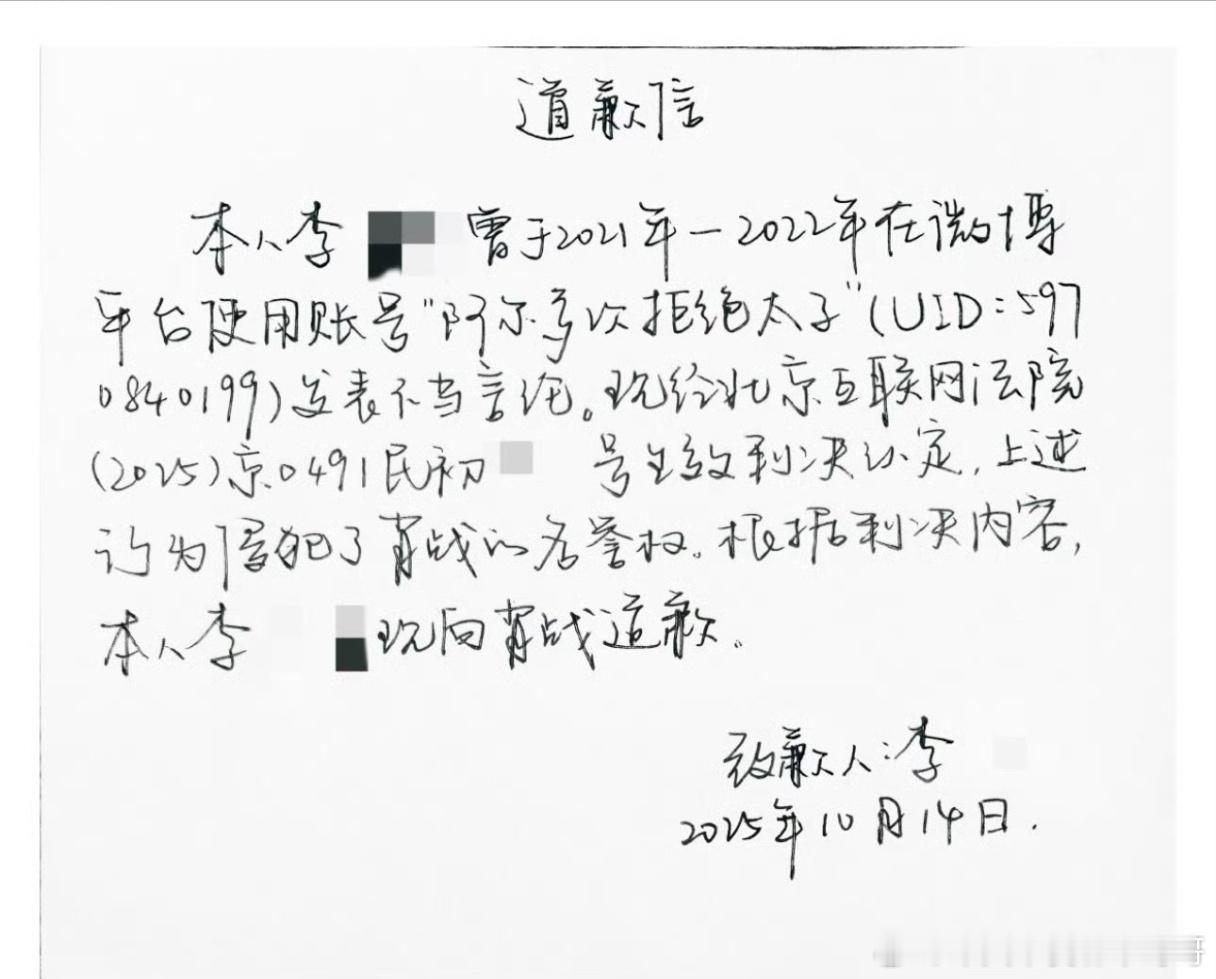 道歉信
本人李 曾于2021年-2022年在微博
平台使用账号"阿尔多次拒绝太子"(UID:597
0840199)发表不当言论。现经北京互联网法院
(2025)京0491民初 号生效判决认定,上述
行为侵犯了肖战的名誉权。根据判决内容,
本人李 现向肖战道歉。
致歉人:李
2025年10月14日.